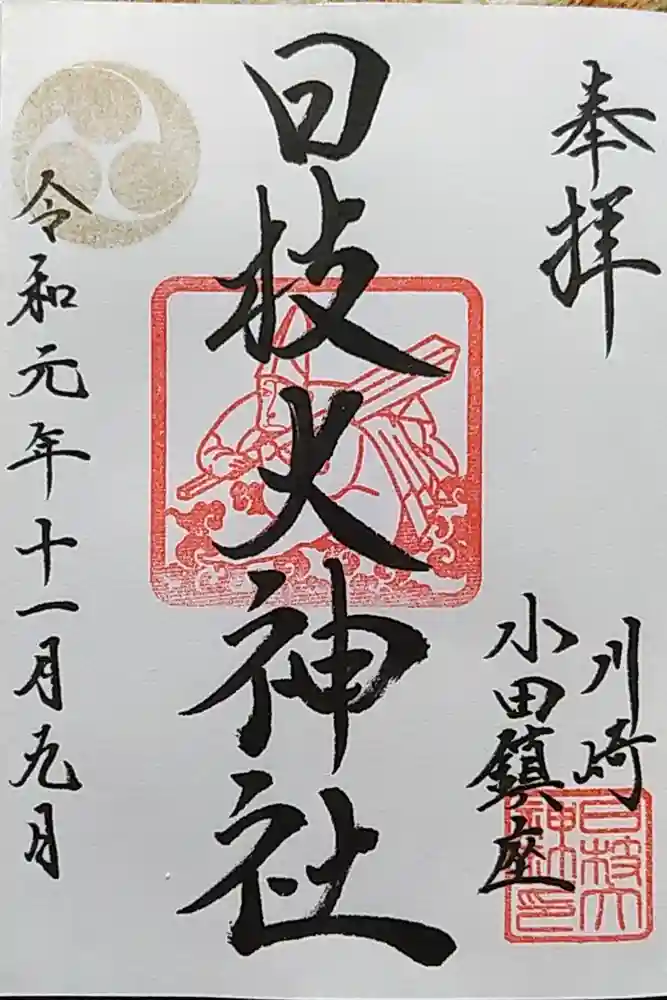 奉拝
川崎
小田鎮座
日枝大神社
日枝大
神社印
令和元年十一月九月